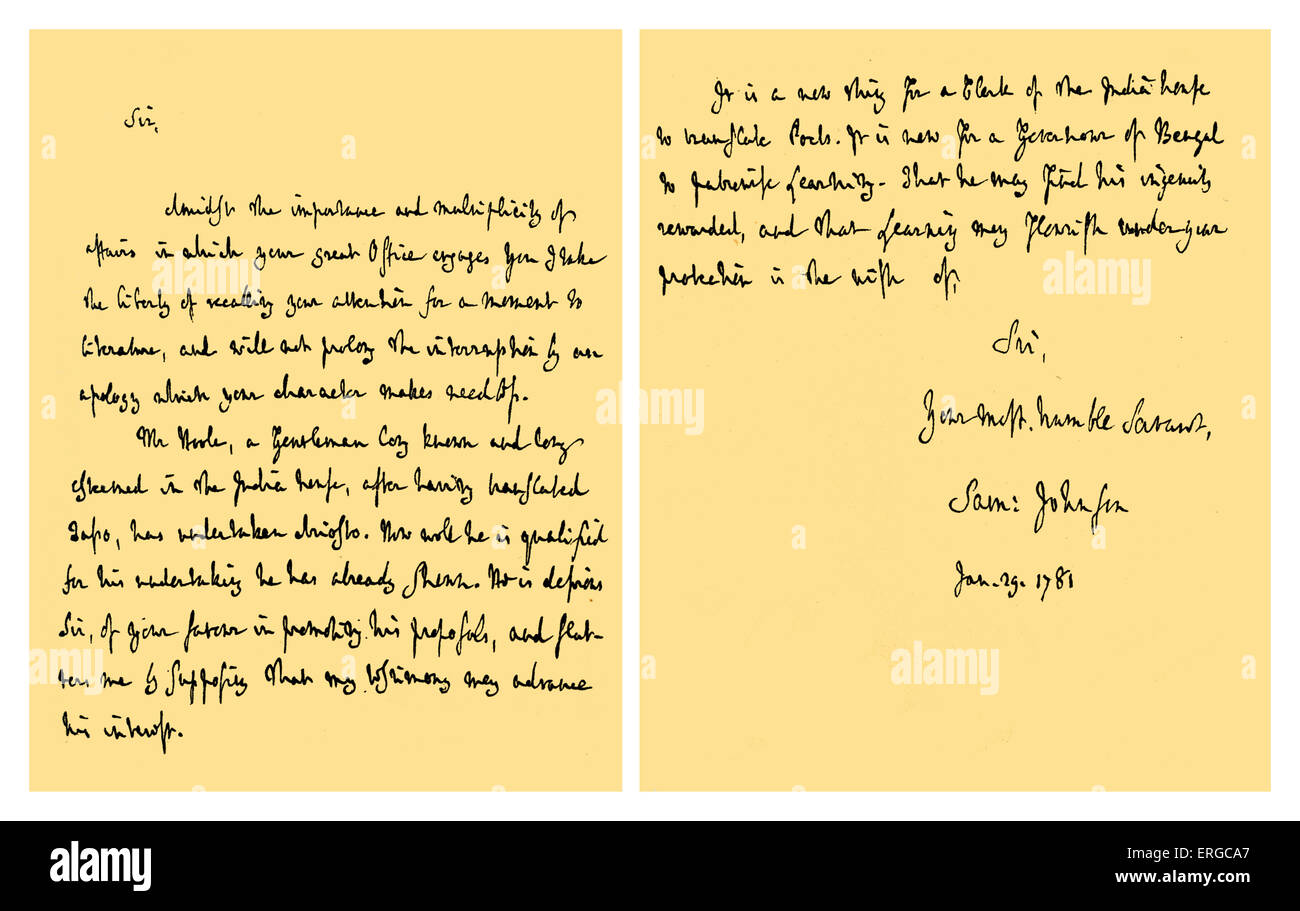 Sir,
Amidst the importance and multiplicity of
affairs in which your great Office engages you I take
the liberty of recalling your attention for a moment to
literature, and will not prolong the interruption by an
apology which your character makes needless.
Mr Hoole, a Gentleman long known and long
esteemed in the India house, after having translated
Tasso, has undertaken Ariosto. How well he is qualified
for his undertaking he has already shewn. He is desirous
Sir, of your favour in promoting his proposals, and flat-
ters me by supposing that my testimony may advance
his interest.
It is a new thing for a Clerk of the India house
to translate Poets. It is new for a Governour of Bengal
to patronise Learning. That he may find his ingenuity
rewarded, and that Learning may flourish under your
protection is the wish of,
Sir,
Your most humble Servant,
Sam: Johnson
Jan. 29. 1781
alamy
Image ID: ERGCA7
www.alamy.com